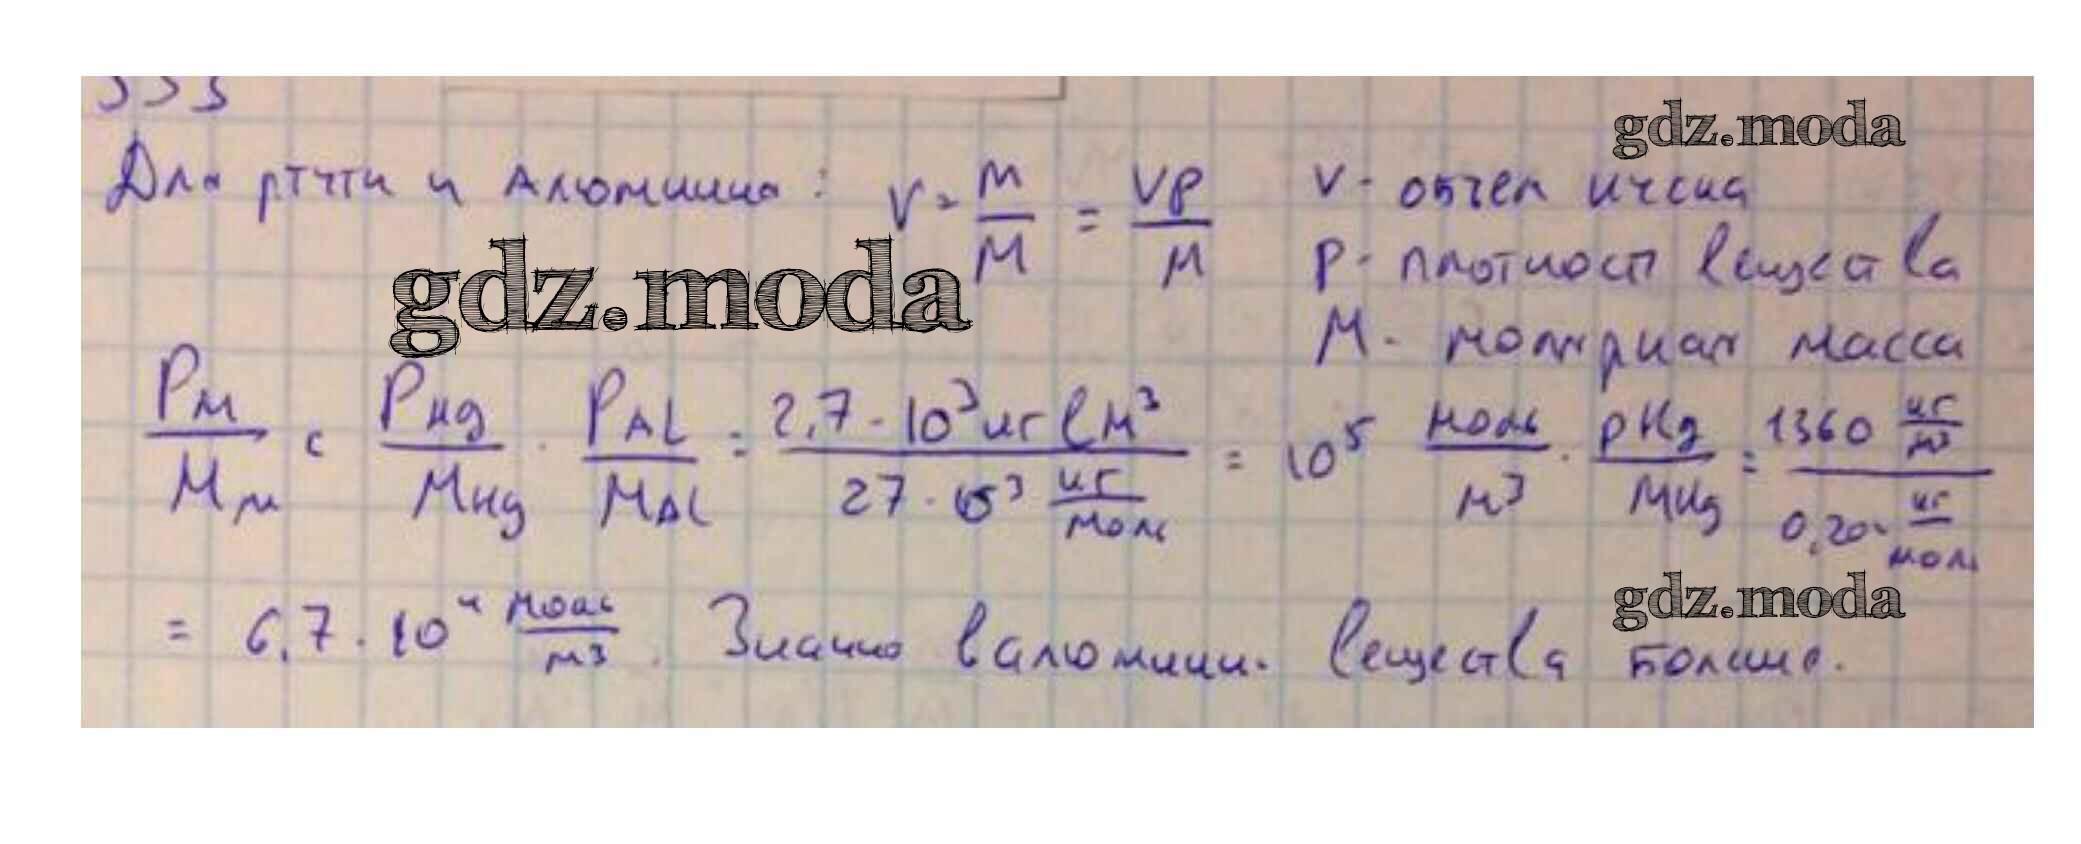 333
gdz.moda
Для ртути и алюминия: ν = m/M = Vρ/M V - объем куска
gdz.moda ρ - плотность вещества
M - молярная масса
Pм/Mм < PHg/MHg · PAl/MAl = 2,7 · 10³ кг/м³ / 27 · 10³ кг/моль = 10⁵ моль/м³ · ρHg/MHg = 1360 кг/м³ / 0,20 кг/моль
gdz.moda
= 6,7 · 10⁴ моль/м³. Значит в алюмини. вещества больше.